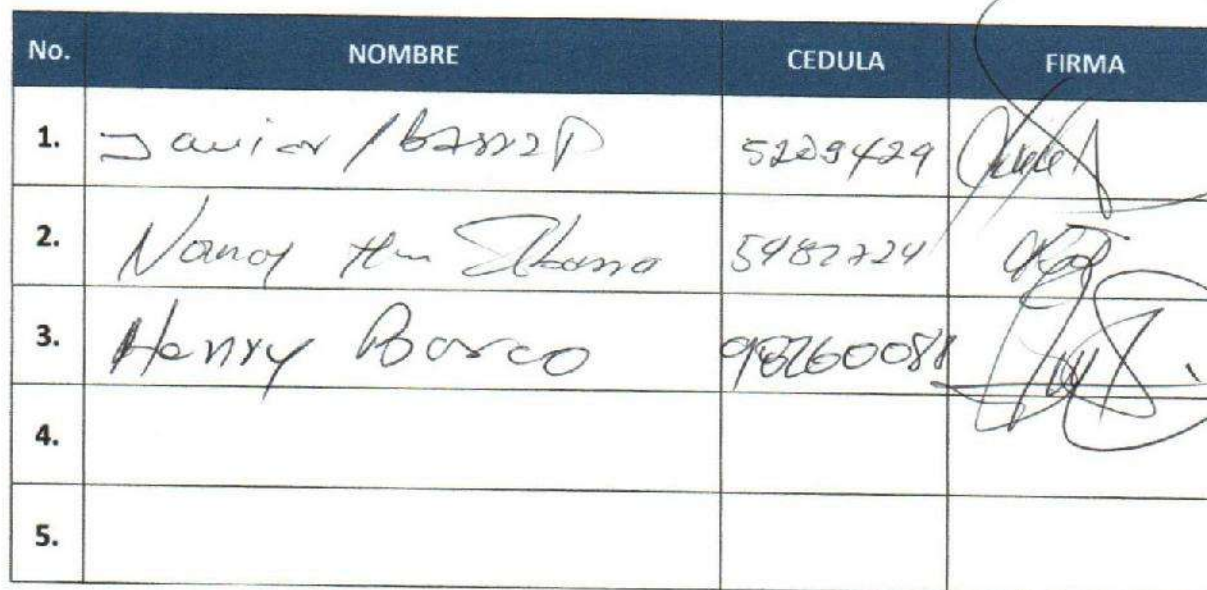 No. NOMBRE CEDULA FIRMA
1. Javier Ibarra P 5209429
2. Nancy Ibarra 5982724
3. Henry Barco 98260088
4.
5.